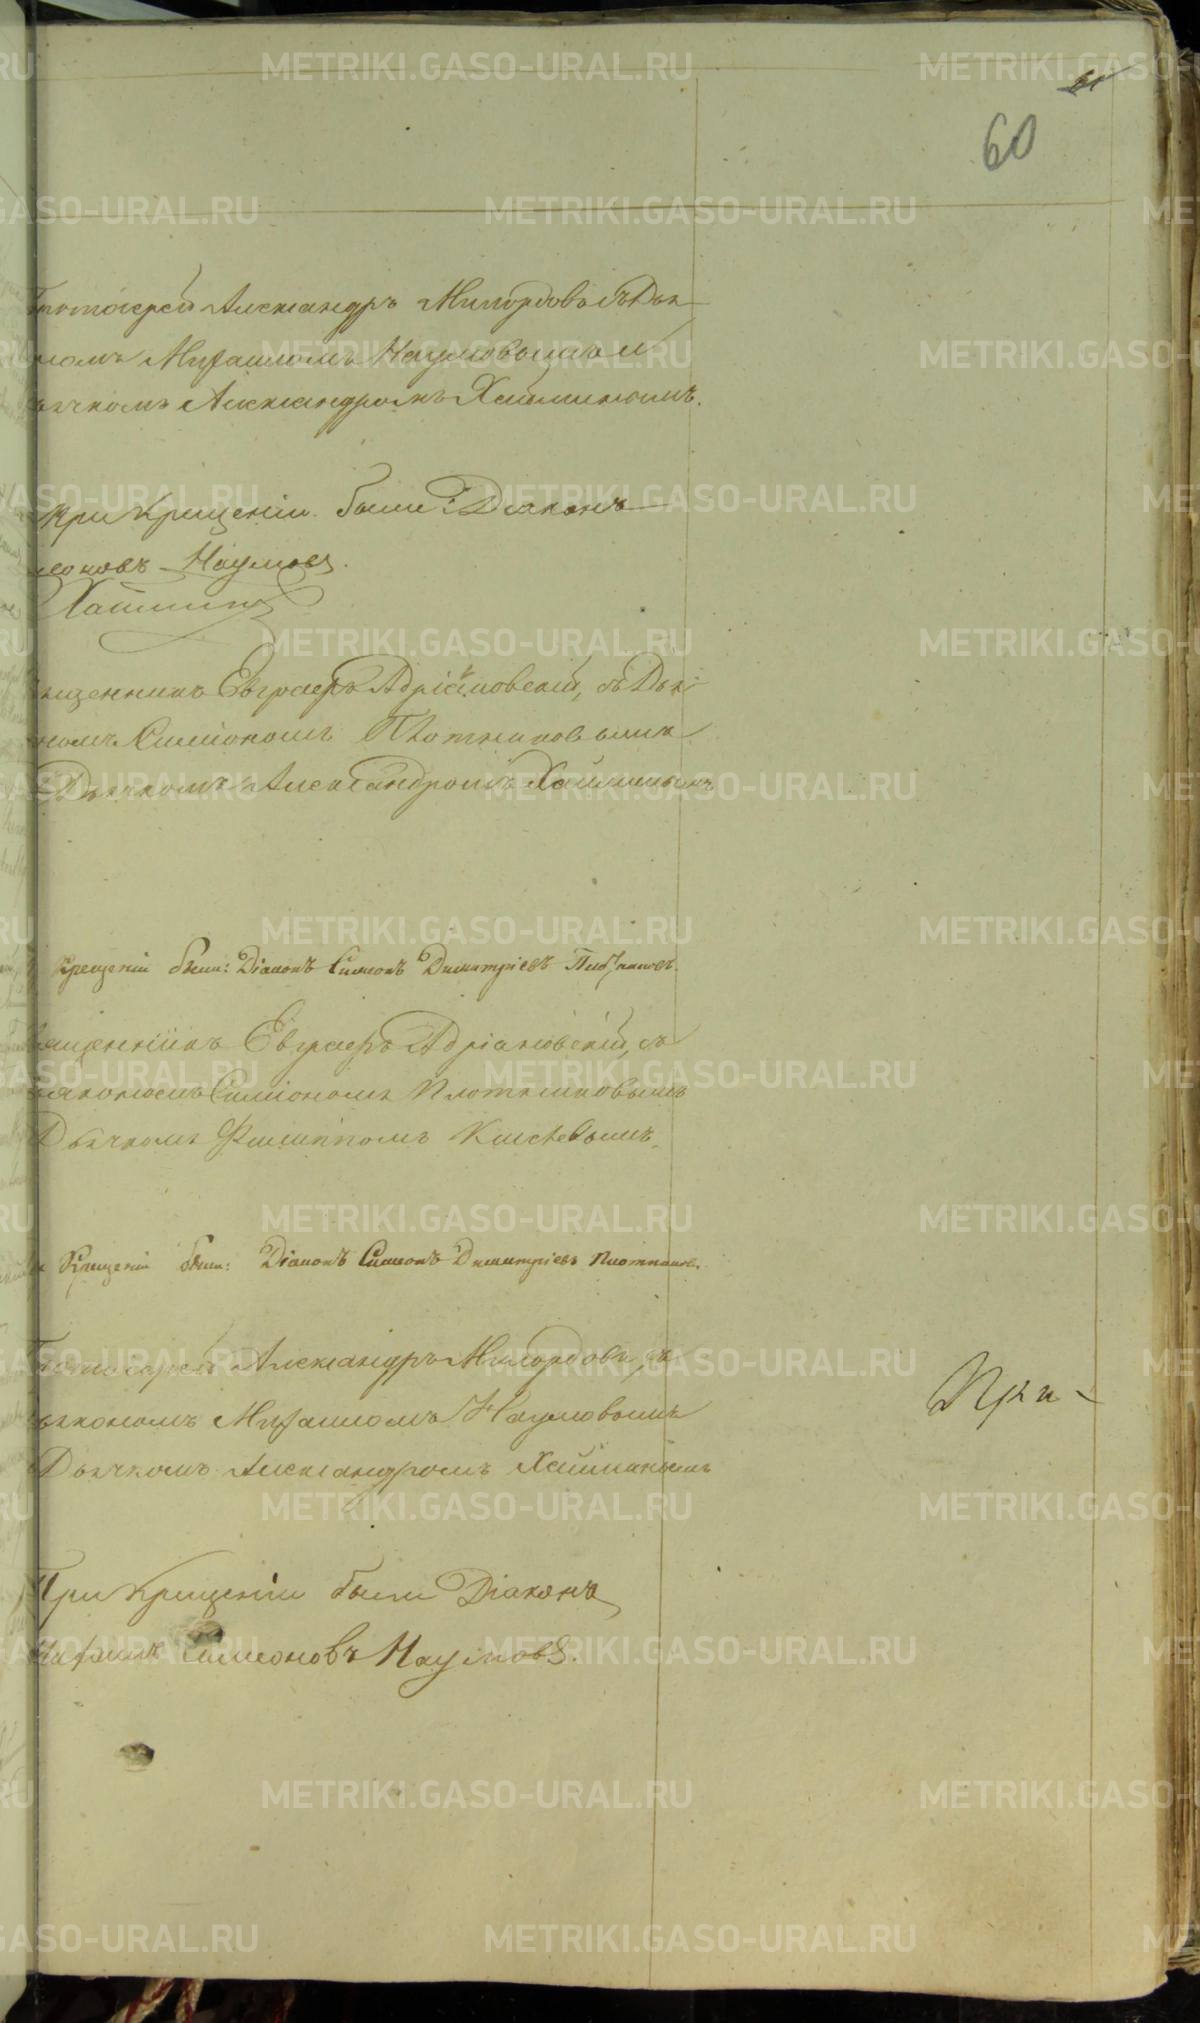 60
Александръ Милордовъ съ Діа
номъ Михаиломъ Наумовымъ и
ячкомъ Александромъ Хайминымъ.
при Крещеніи были: Діаконъ
меоновъ Наумовъ.
Хайминъ
щенникъ Евграфъ Адріановскій, съ Діа
номъ Симіономъ Плотниковымъ
Дьячкомъ Александромъ Хайминымъ
Крещеніи были: Діаконъ Симеонъ Димитріевъ Плотниковъ.
ященникъ Евграфъ Адріановскій, съ
іакономъ Симіономъ Плотниковымъ
Дьячкомъ Филиппомъ
Крещеніи были: Діаконъ Симеонъ Димитріевъ Плотниковъ.
Александръ Милордовъ, съ
ьякономъ Михаиломъ Наумовымъ
Дьячкомъ Александромъ Хайминымъ
При
При Крещеніи были Діаконъ
Симеоновъ Наумовъ.
METRIKI.GASO-URAL.RU